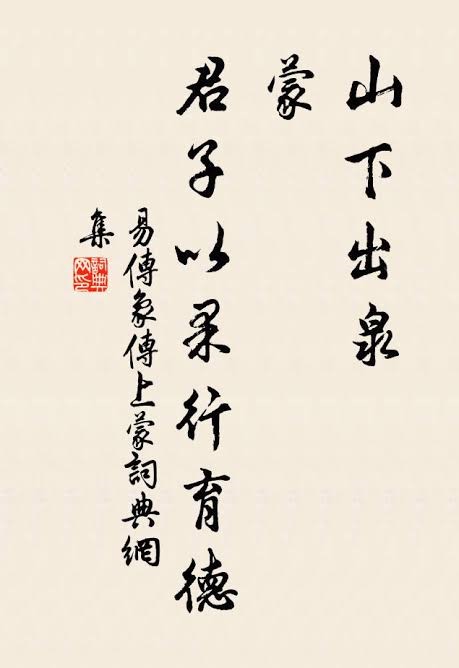 山下出泉
蒙
君子以果行育德
易傳象傳上蒙詞典網
集
詞典網印